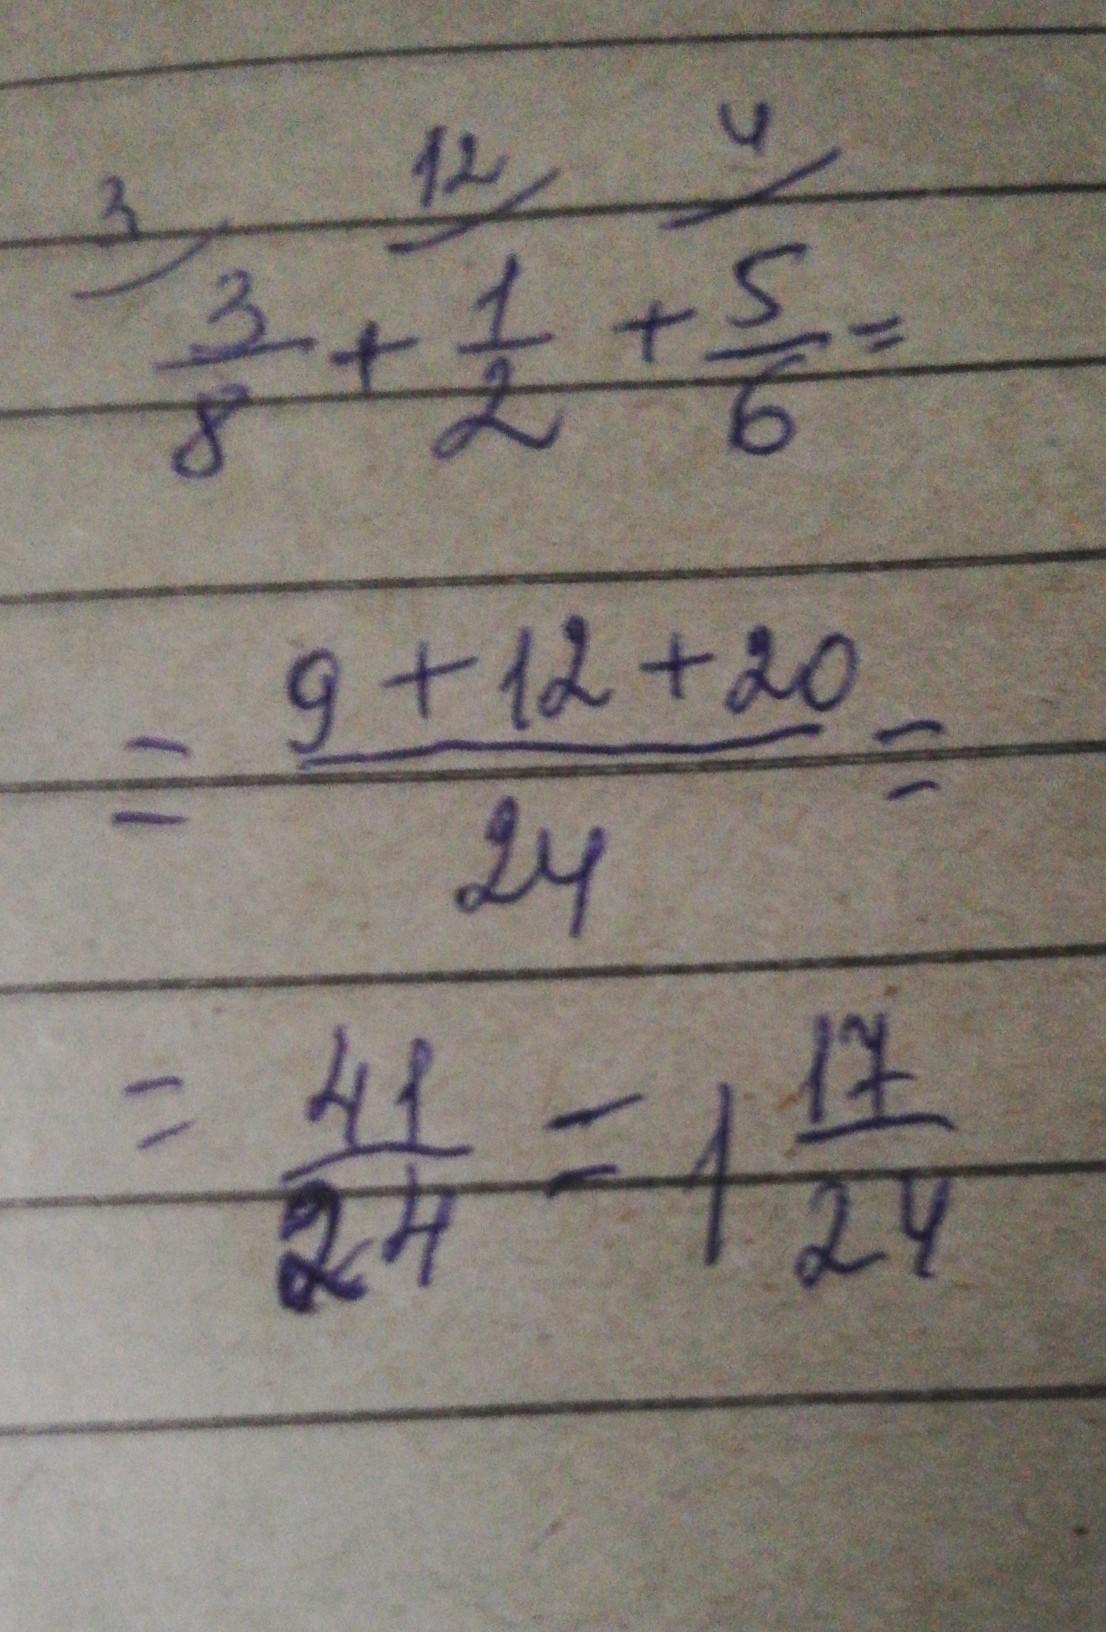 3 12 4
3/8 + 1/2 + 5/6 =
= 9 + 12 + 20 / 24 =
= 41/24 = 1 17/24